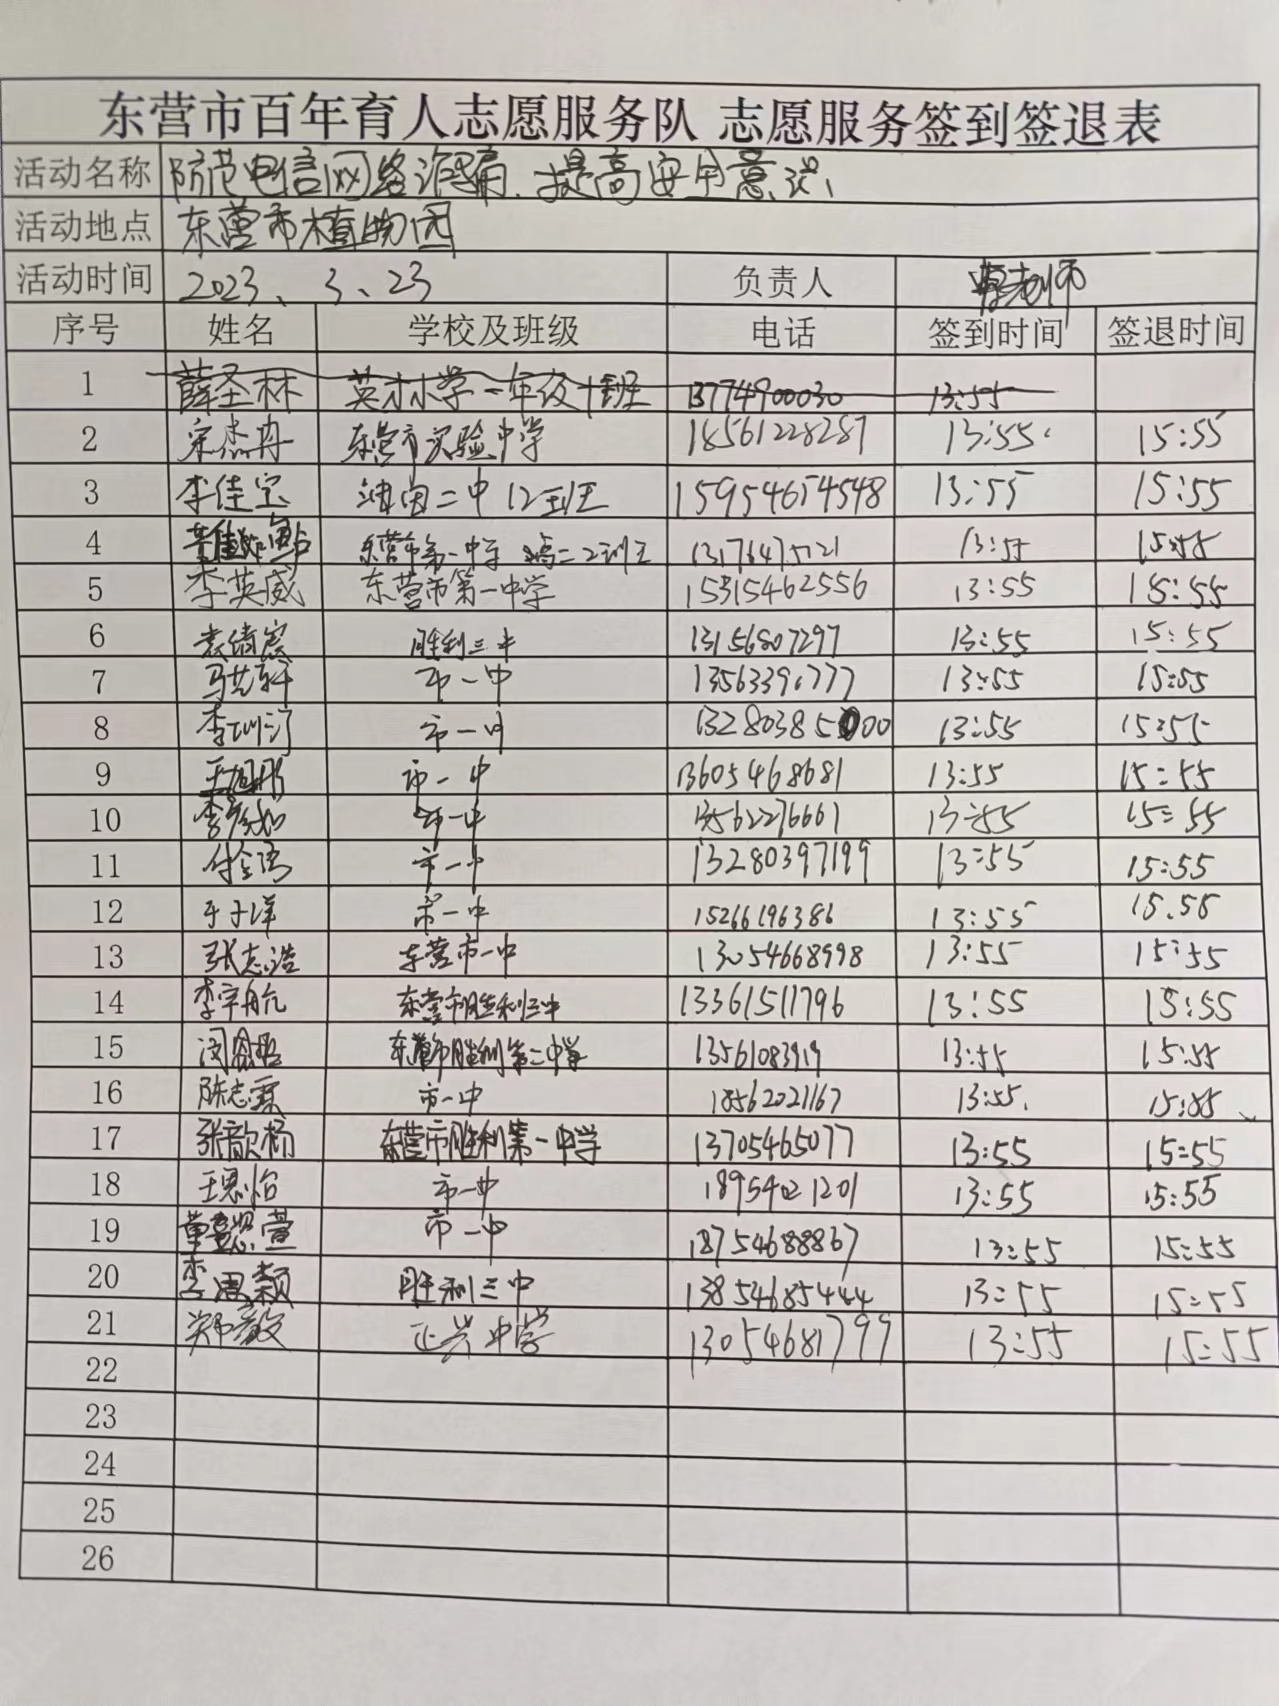 东营市百年育人志愿服务队 志愿服务签到签退表
活动名称 防范电信网络诈骗、提高安全意识、
活动地点 东营市植物园
活动时间 2023、3、23 负责人 老师
序号 姓名 学校及班级 电话 签到时间 签退时间
1 薛圣林 英才小学一年级十班 13774900030 13:55
2 宋杰冉 东营市实验中学 18561228287 13:55 15:55
3 李佳宝 油田二中12班 15954654548 13:55 15:55
4 东营市第一中学 高二2 13:55 15:55
5 李英威 东营市第一中学 15315462556 13:55 15:55
6 袁绪宸 胜利三中 13156807297 13:55 15:55
7 马芸轩 市一中 13563391777 13:55 15:55
8 李圳汀 市一中 13280385000 13:55 15:55
9 王旭彤 市一中 13605468681 13:55 15:55
10 李 市一中 13562276661 13:55 15:55
11 付 市一中 13280397199 13:55 15:55
12 于子洋 市一中 15266196386 13:55 15.55
13 张志浩 东营市一中 13054668998 13:55 15:55
14 李宇航 东营市胜利三中 13361511796 13:55 15:55
15 闵 东营市胜利第二中学 13561083919 13:55 15:55
16 陈志霖 市一中 18562021167 13:55 15:55
17 张歆杨 东营市胜利第一中学 13705465077 13:55 15:55
18 王思怡 市一中 18954021201 13:55 15:55
19 萱 市一中 18754688867 13:55 15:55
20 李思颖 胜利三中 13854685444 13:55 15:55
21 郑毅 正兴中学 13054681799 13:55 15:55
22
23
24
25
26